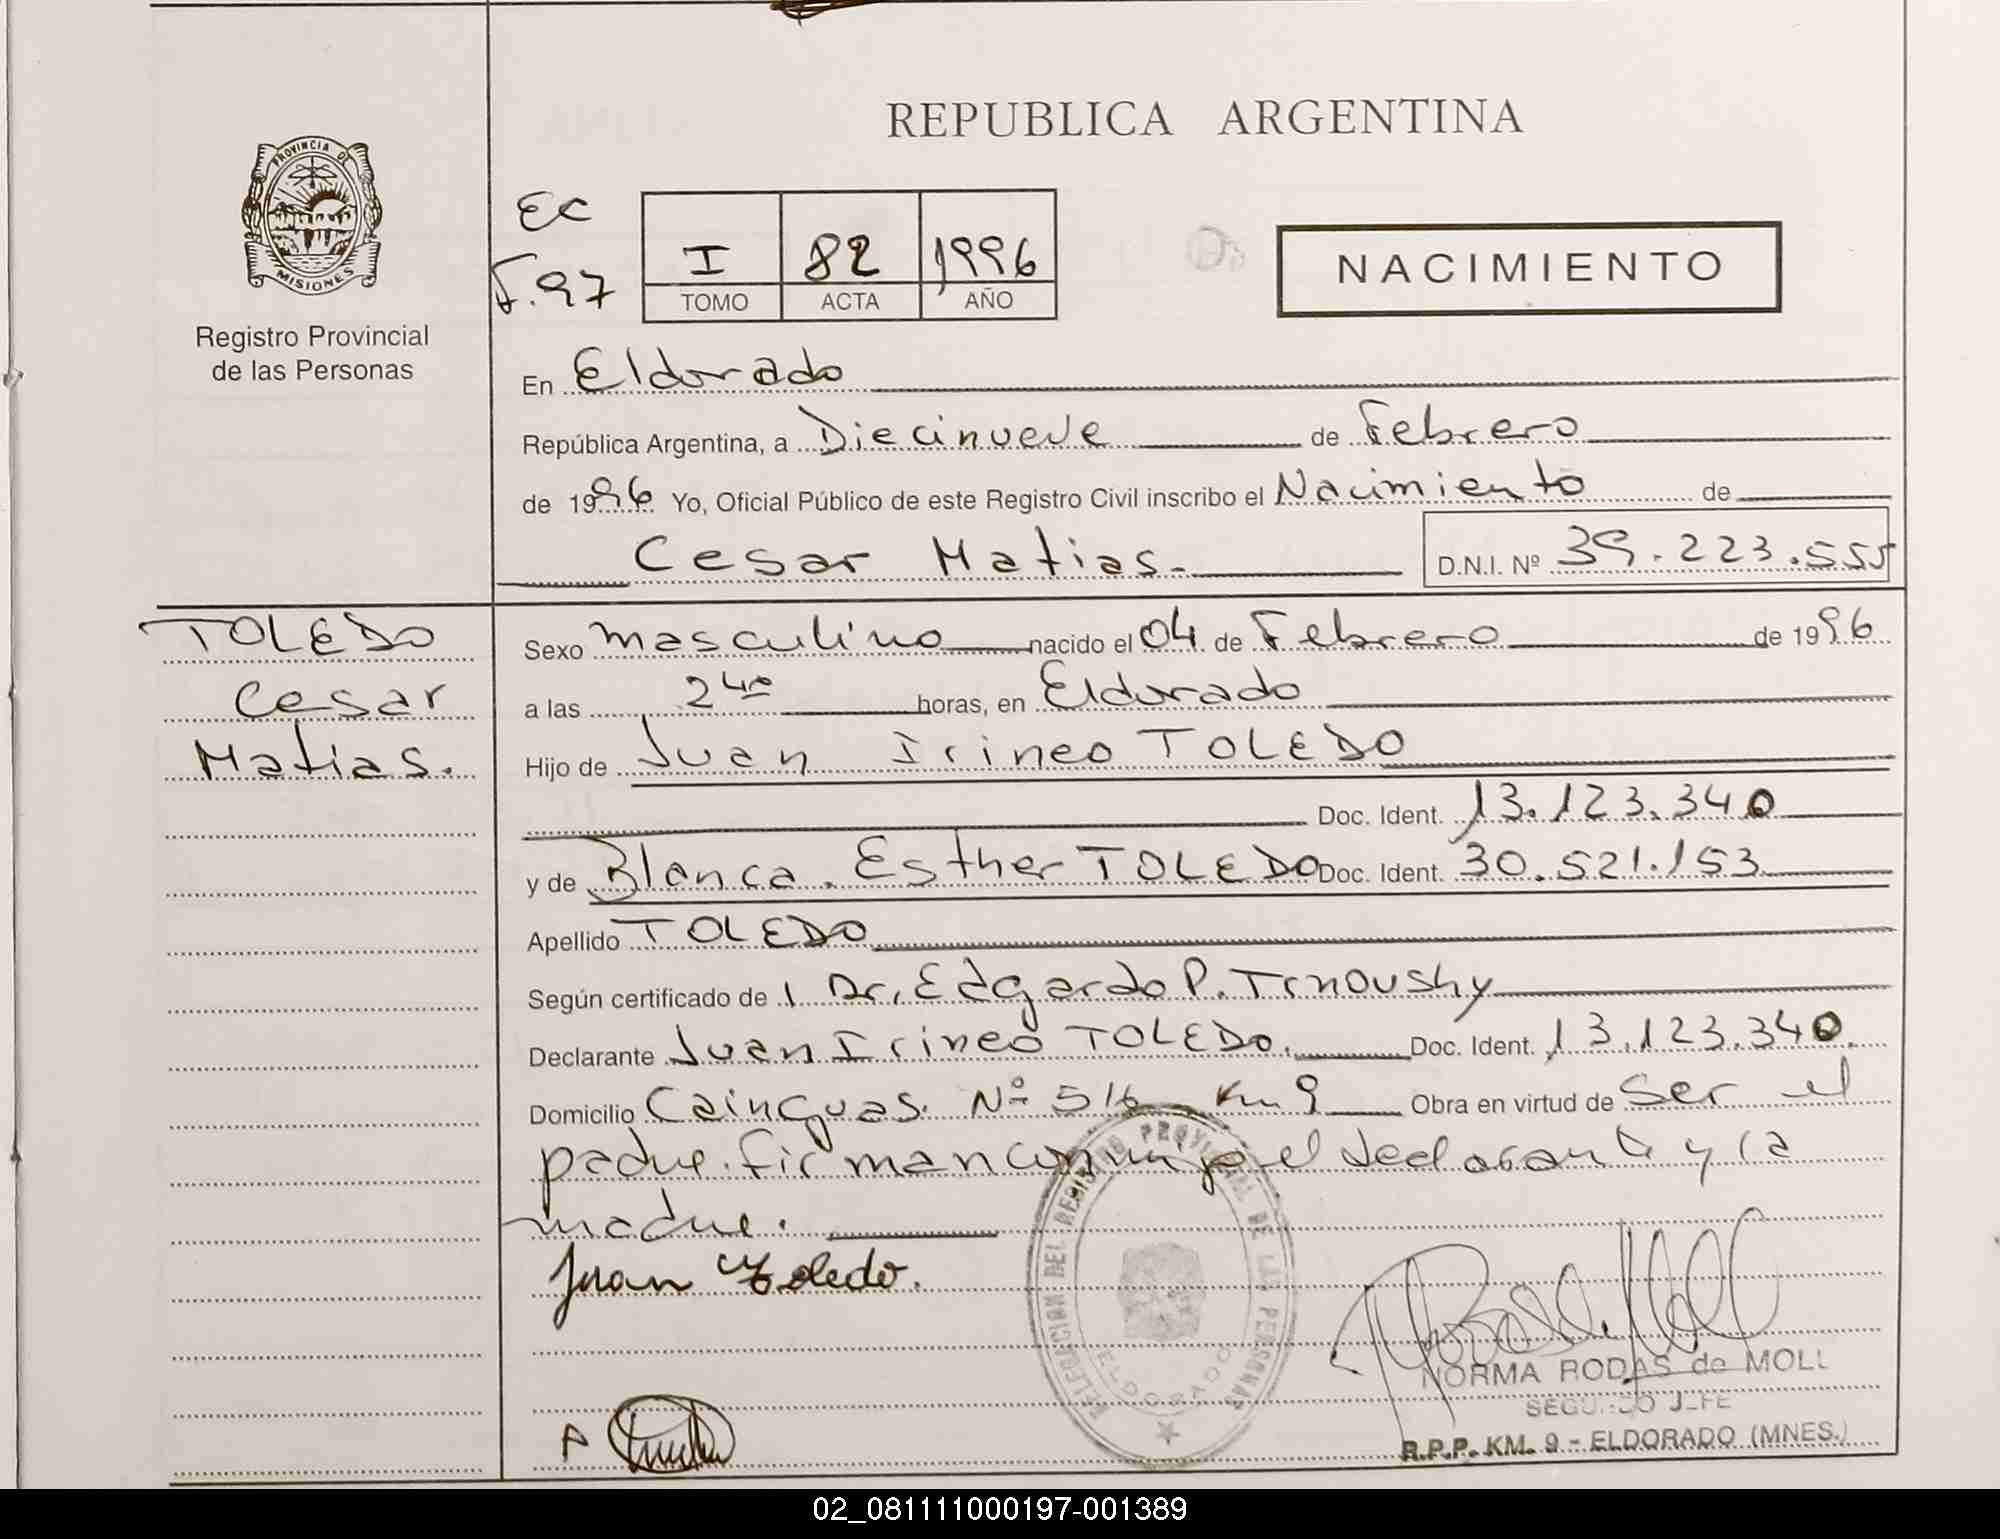 REPUBLICA ARGENTINA
PROVINCIA DE
MISIONES
Registro Provincial
de las Personas
EC
F.97
I 82 1996
TOMO ACTA AÑO
NACIMIENTO
En Eldorado
República Argentina, a Diecinueve de Febrero
de 1996 Yo, Oficial Público de este Registro Civil inscribo el Nacimiento de
Cesar Matias.
D.N.I. Nº 39.223.555
TOLEDO
Cesar
Matias.
Sexo masculino nacido el 04 de Febrero de 1996
a las 2 40 horas, en Eldorado
Hijo de Juan Irineo TOLEDO
Doc. Ident. 13.123.340
y de Blanca. Esther TOLEDO Doc. Ident. 30.521.153
Apellido TOLEDO
Según certificado de Dr. Edgardo P.
Declarante Juan Irineo TOLEDO. Doc. Ident. 13.123.340.
Domicilio Cainguas. Nº 516 Km 9 Obra en virtud de Ser el
padre. firman conmigo el declarante y la
madre.
Juan Toledo.
DELEGACION DEL REGISTRO PROVINCIAL DE LAS PERSONAS
ELDORADO
NORMA RODAS de MOLL
SEGUNDO JEFE
R.P.P. KM. 9 - ELDORADO (MNES.)
02_081111000197-001389